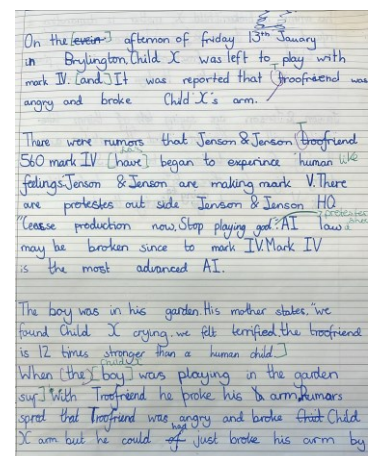 On the [evein] afternoon of friday 13th January
in Brylington, Child X was left to play with
mark IV. [and] It was reported that Troofriend was
angry and broke Child X's arm.
There were rumors that Jenson & Jenson Troofriend
560 mark IV [have] began to experince human like
feelings. Jenson & Jenson are making mark V. There
are protestes out side Jenson & Jenson HQ
"Cease production now. Stop playing god". AI law
may be broken since to mark IV. Mark IV
is the most advanced AI.
The boy was in his garden. His mother states, "we
found Child X crying. we felt terrified. the troofriend
is 12 times stronger than a human child.]
When [the] boy] was playing in the garden
with Troofriend he broke his arm, rumors
spred that Troofriend was angry and broke Child
X arm but he could had just broke his arm by